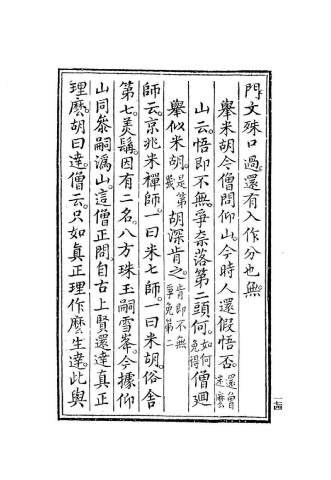 門文殊口過。還有入作分也無
舉米胡令僧問仰山。今時人還假悟否。還曾迷麼
山云。悟即不無。爭奈落第二頭何。如何免得僧迴
舉似米胡。是第幾胡深肯之。肯即不無爭免第二
師云。京兆米禪師。一曰米七師。一曰米胡。俗舍
第七。美鬚。因有二名。八方珠玉嗣雪峯。今據仰
山同叅嗣溈山。這僧正問。自古上賢。還達真正
理麼。胡曰達。僧云。只如真正理作麼生達。此與